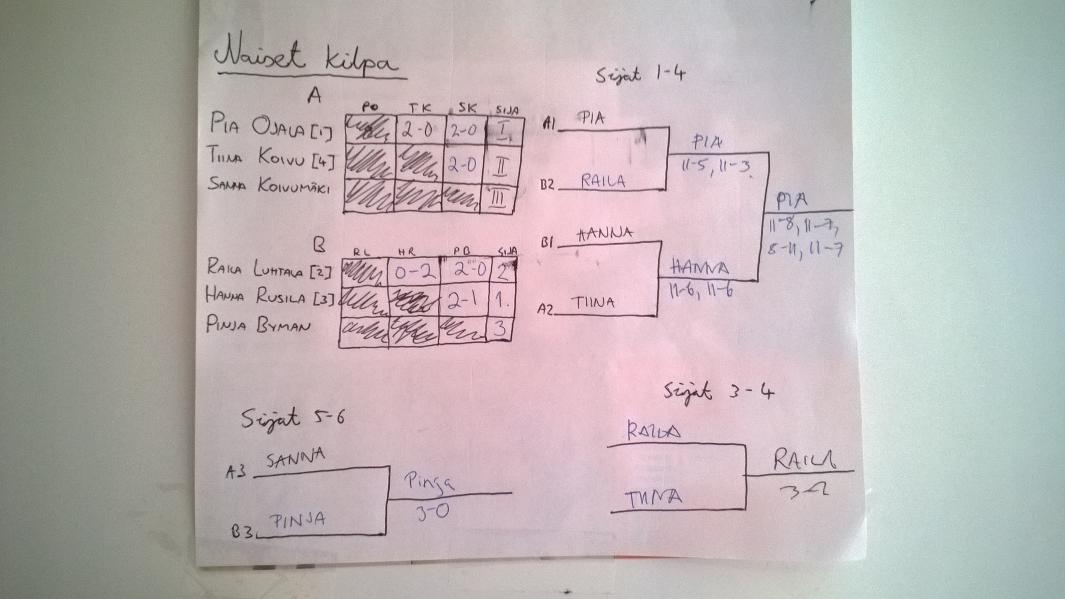 Naiset kilpa
A
PO TK SK SIJA
PIA OJALA [1] 2-0 2-0 I
TIINA KOIVU [4] 2-0 II
SANNA KOIVUMÄKI III
B
RL HR PB SIJA
RAILA LUHTALA [2] 0-2 2-0 2
HANNA RUSILA [3] 2-1 1.
PINJA BYMAN 3
Sijat 1-4
A1 PIA
B2 RAILA
PIA
11-5, 11-3
B1 HANNA
A2 TIINA
HANNA
11-6, 11-6
PIA
11-8, 11-7,
8-11, 11-7
Sijat 5-6
A3 SANNA
B3 PINJA
Pinja
3-0
Sijat 3-4
RAILA
TIINA
RAILA